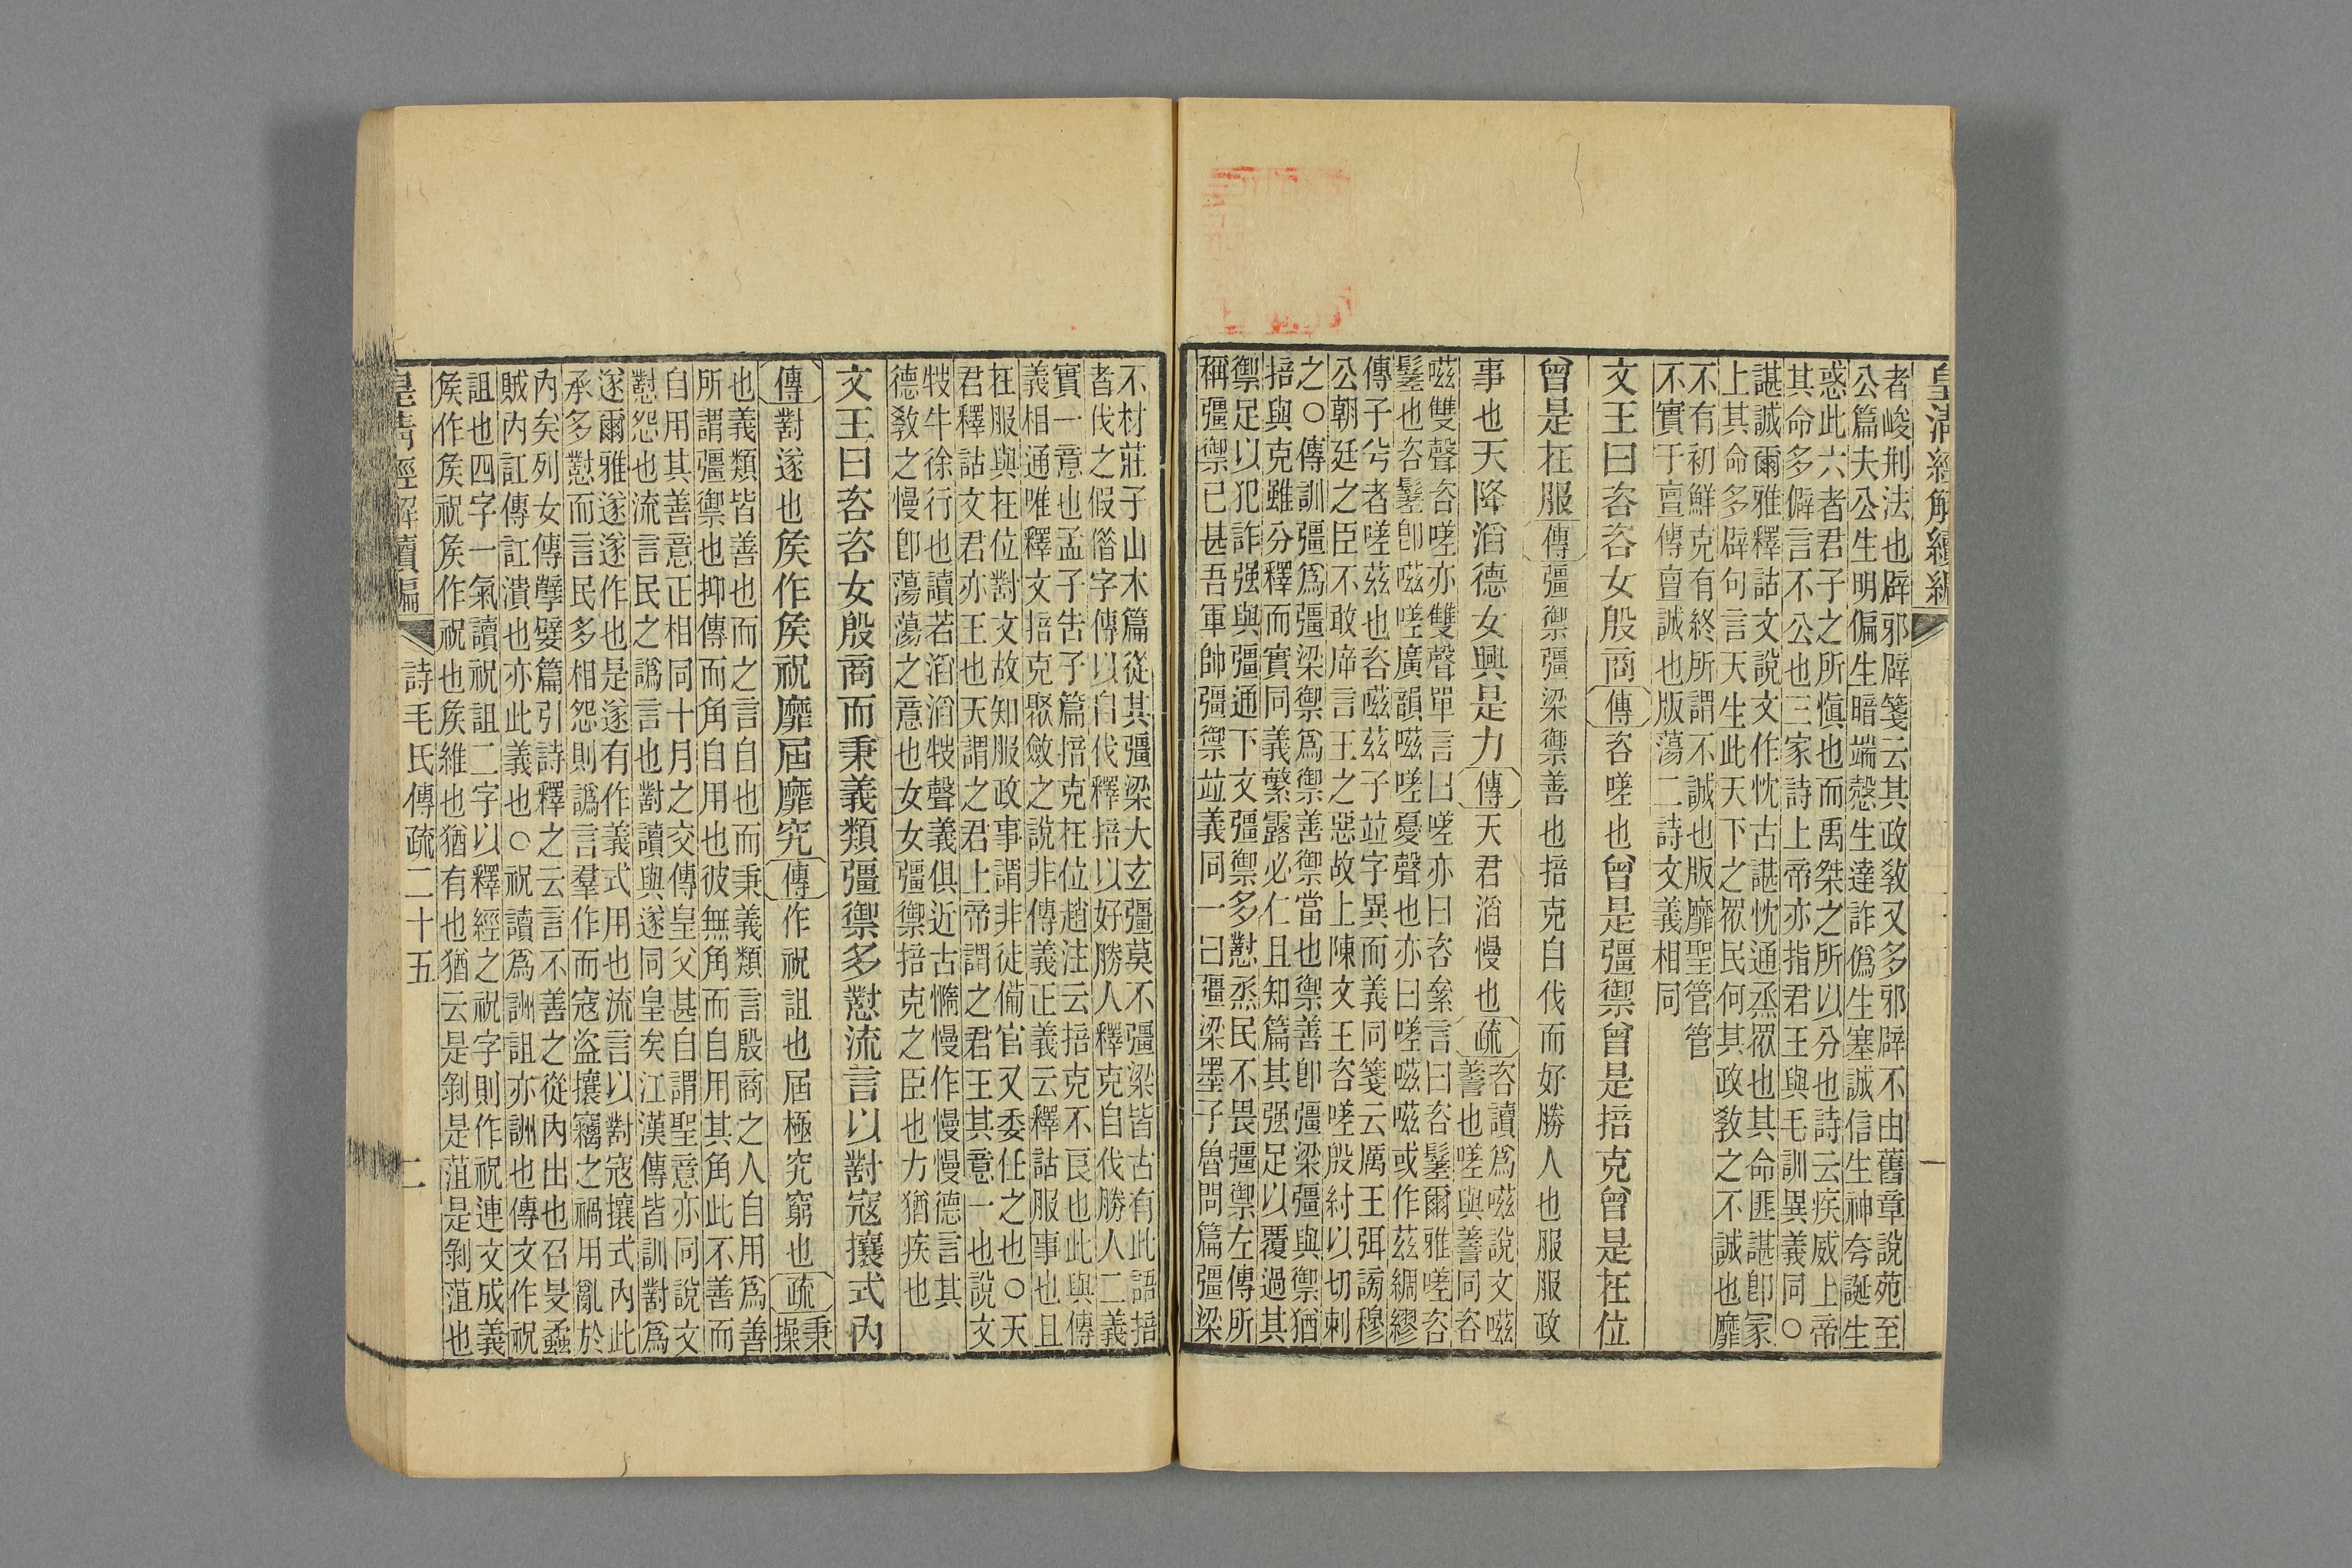 皇清經解續編　一
者峻刑法也辟邪辟箋云其政敎又多邪辟不由舊章說苑至
公篇夫公生明偏生暗端慤生達詐僞生塞誠信生神夸誕生
惑此六者君子之所愼也而禹桀之所以分也詩云疾威上帝
其命多僻言不公也三家詩上帝亦指君王與毛訓異義同○
諶誠爾雅釋詁文說文作忱古諶忱通烝眾也其命匪諶卽冡
上其命多辟句言天生此天下之眾民何其政敎之不誠也靡
不有初鮮克有終所謂不誠也版靡聖管管
不實于亶傳亶誠也版蕩二詩文義相同
文王曰咨咨女殷商傳咨嗟也曾是彊禦曾是掊克曾是在位
曾是在服傳彊禦彊梁禦善也掊克自伐而好勝人也服服政
事也天降滔德女興是力傳天君滔慢也疏
咨讀爲嗞說文嗞
也嗟與同咨
嗞雙聲咨嗟亦雙聲單言曰嗟亦曰咨絫言曰咨爾雅嗟咨
也咨卽嗞嗟廣韻嗞嗟憂聲也亦曰嗟嗞或作茲綢繆
傳子兮者嗟茲也咨嗞茲子竝字異而義同箋云厲王弭謗穆
公朝廷之臣不敢斥言王之惡故上陳文王咨嗟殷紂以切刺
之○傳訓彊爲彊梁禦爲禦善禦當也禦善卽彊梁彊與禦猶
掊與克雖分釋而實同義繁露必仁且知篇其强足以覆過其
禦足以犯詐强與彊通下文彊禦多懟烝民不畏彊禦左傳所
稱彊禦已甚吾軍帥彊禦竝義同一曰彊梁墨子魯問篇彊梁
不材莊子山木篇從其彊梁大玄彊莫不彊梁皆古有此語掊
者伐之假借字傳以自伐釋掊以好勝人釋克自伐勝人二義
實一意也孟子告子篇掊克在位趙注云掊克不良也此與傳
義相通唯釋文掊克聚斂之說非傳義正義云釋詁服事也且
在服與在位對文故知服政事謂非徒備官又委任之也○天
君釋詁文君亦王也天謂之君上帝謂之君王其意一也說文
牧牛徐行也讀若滔滔牧聲義俱近古慆慢作慢慢德言其
德敎之慢卽蕩蕩之意也女女彊禦掊克之臣也力猶疾也
文王曰咨咨女殷商而秉義類彊禦多懟流言以對寇攘式內
傳對遂也矦作矦祝靡屆靡究傳作祝詛也屆極究窮也疏
秉
操
也義類皆善也而之言自也而秉義類言殷商之人自用爲善
所謂彊禦也抑傳而角自用也彼無角而自用其角此不善而
自用其善意正相同十月之交傳皇父甚自謂聖意亦同說文
懟怨也流言民之譌言也對讀與遂同皇矣江漢傳皆訓對爲
遂爾雅遂遂作也是遂有作義式用也流言以對寇攘式內此
承多懟而言民多相怨則譌言羣作而寇盜攘竊之禍用亂於
內矣列女傳孽嬖篇引詩釋之云言不善之從內出也召旻蟊
賊內訌傳訌潰也亦此義也○祝讀爲詶詛亦詶也傳文作祝
詛也四字一氣讀祝詛二字以釋經之祝字則作祝連文成義
矦作矦祝矦作祝也矦維也猶有也猶云是剝是菹是剝菹也
皇清經解續編　詩毛氏傳疏二十五　二